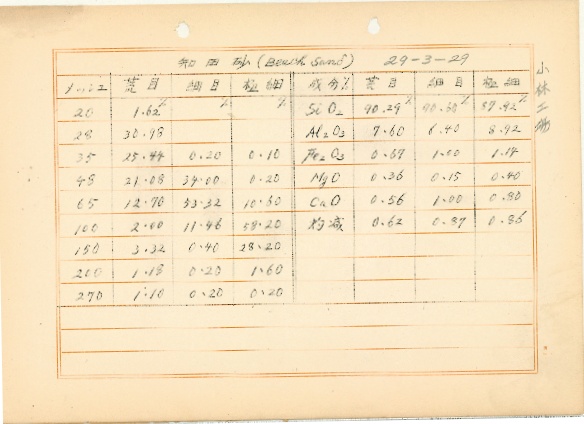 和田砂 (Beach Sand) 29-3-29
メッシュ 荒目 細目 極細 成分% 荒目 細目 極細
20 1.62% % % SiO₂ 90.29% 90.% 87.92%
28 30.98 Al₂O₃ 7.60 6.40 8.92
35 25.44 0.20 0.10 Fe₂O₃ 0.67 1.00 1.14
48 21.08 34.00 0.20 MgO 0.36 0.15 0.40
65 12.70 53.32 10.60 CaO 0.56 1.00 0.80
100 2.00 11.46 58.20 灼減 0.62 0.87 0.86
150 3.32 0.40 28.20
200 1.18 0.20 1.60
270 1.10 0.20 0.20
小林工